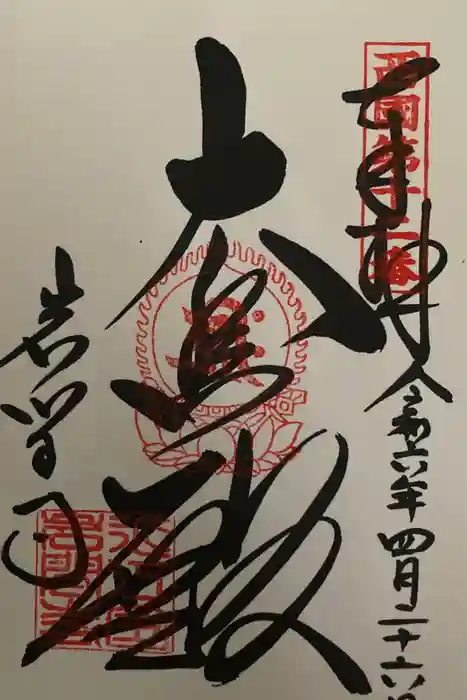 西国第十二番
奉拝
令和六年四月二十六日
大悲殿
岩間寺